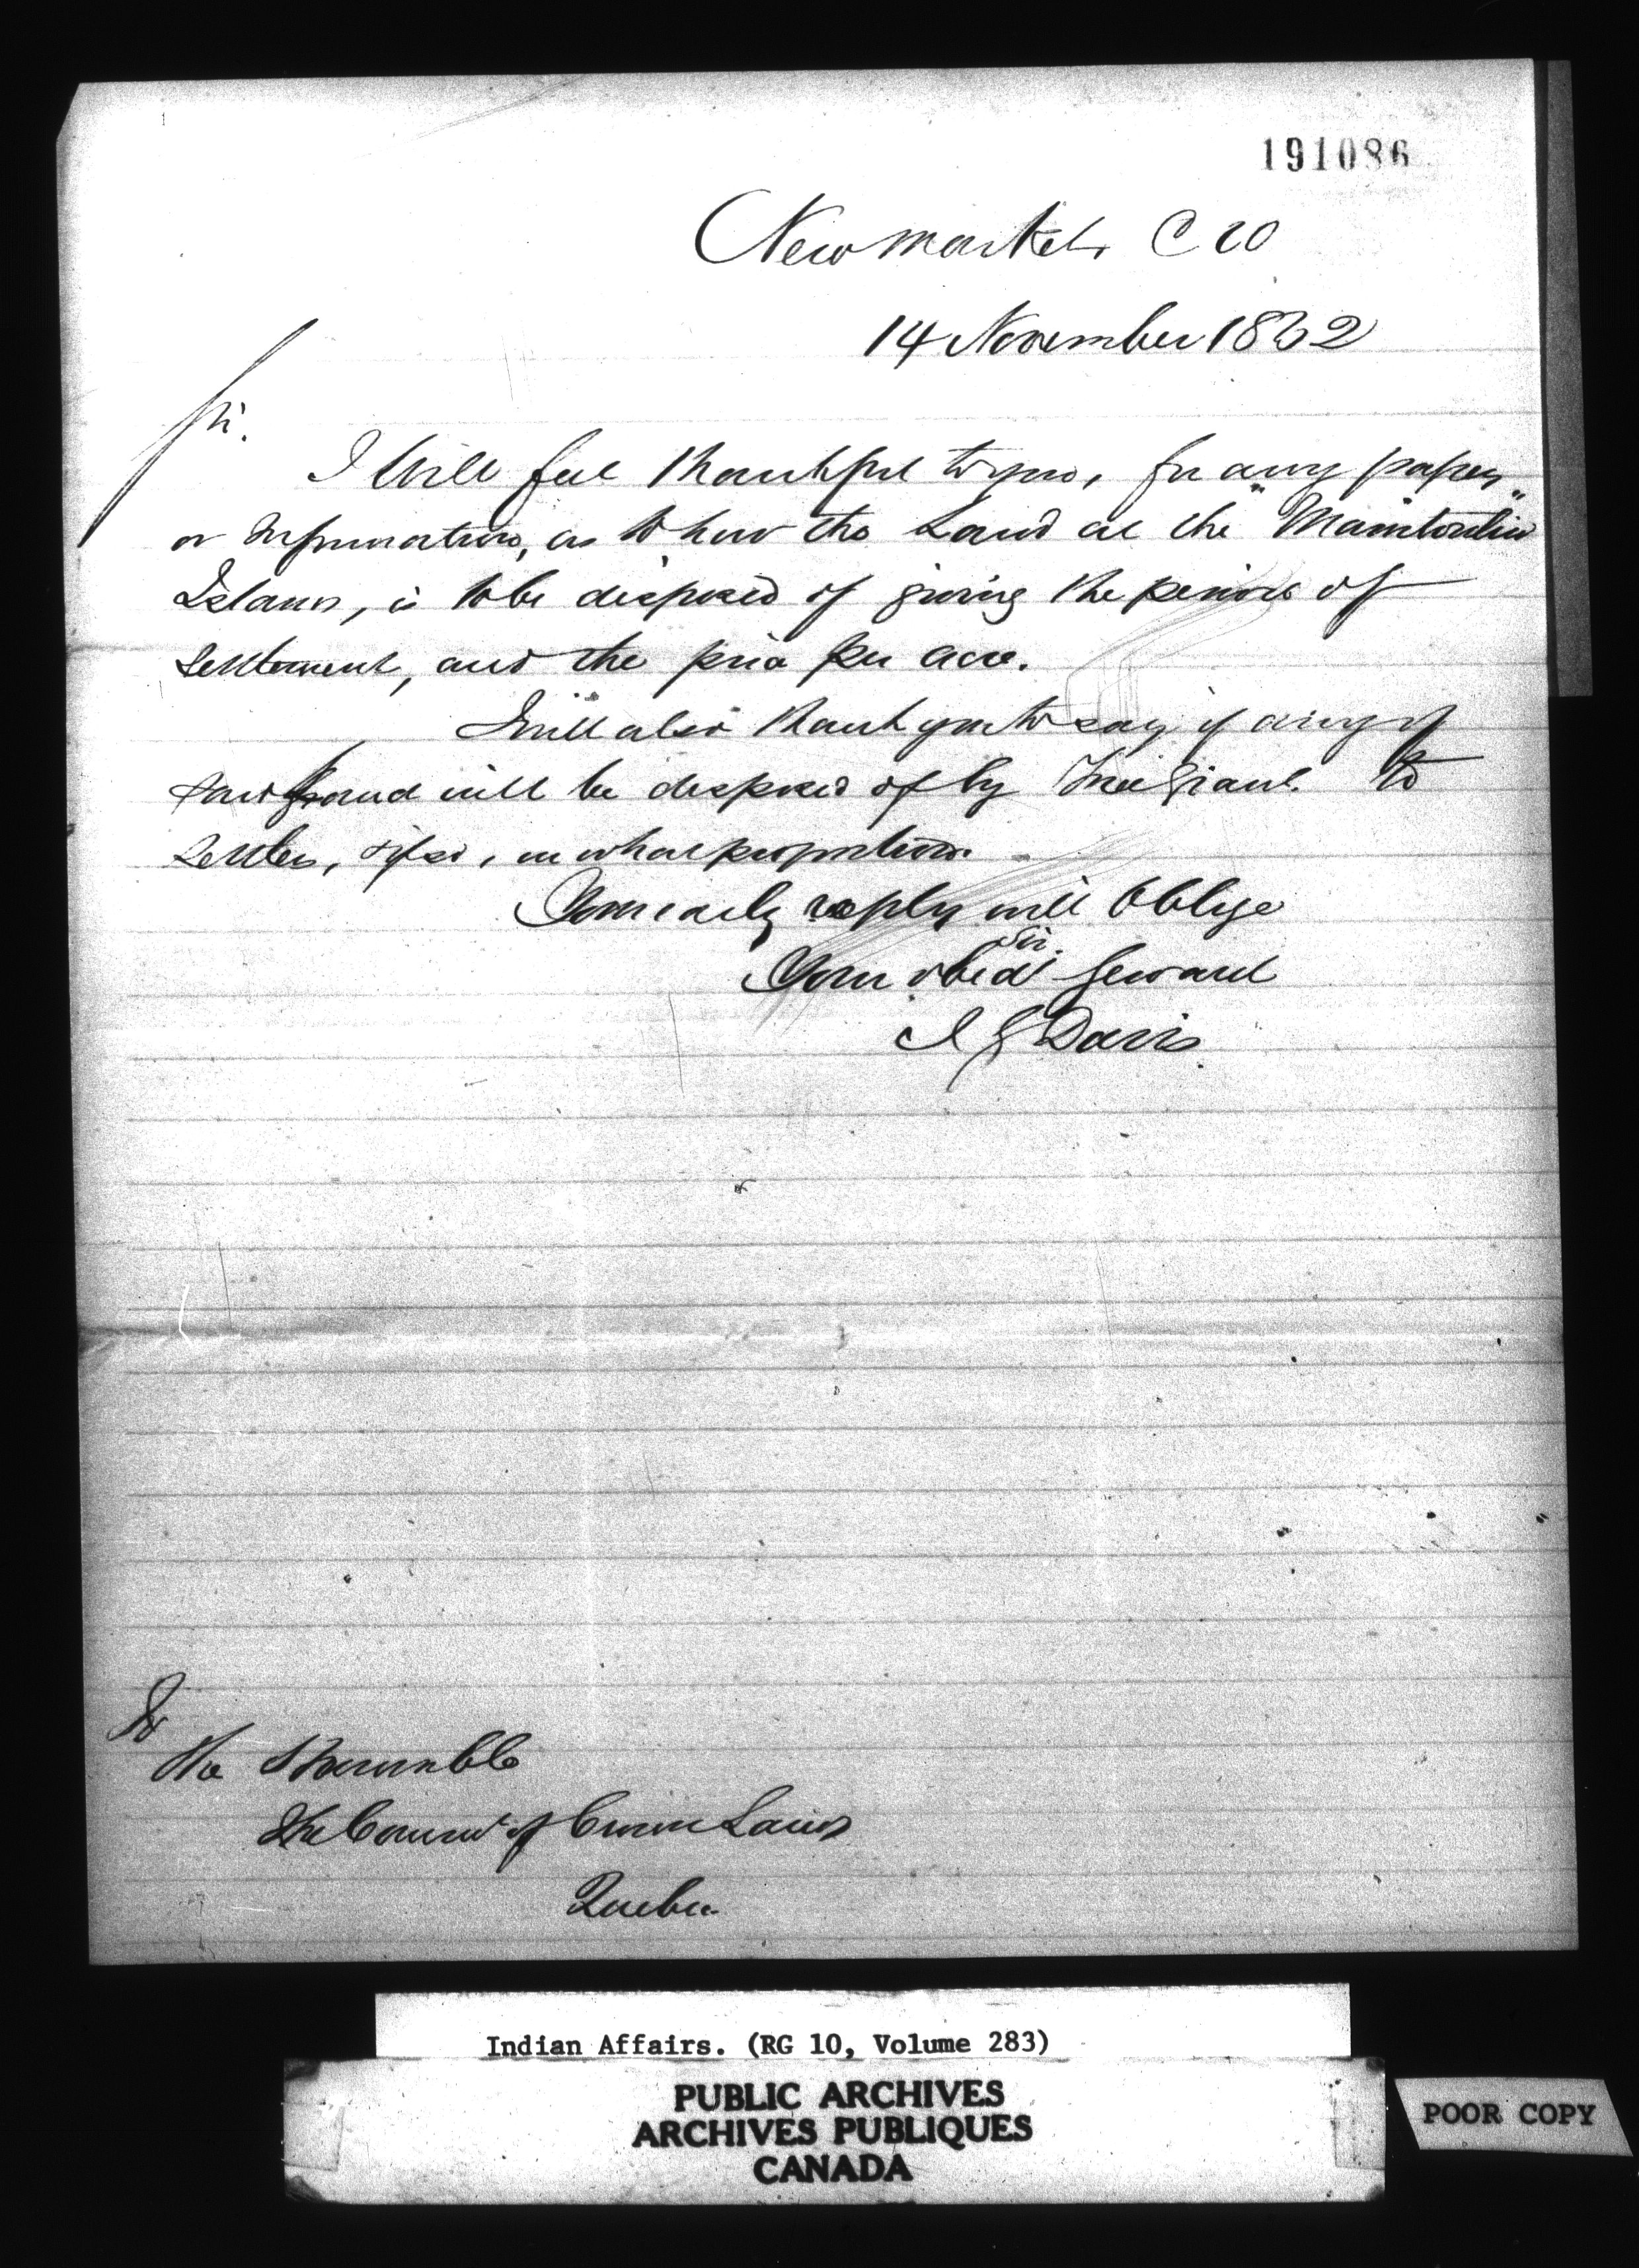 191086
Newmarket, C W
14 November 1862
Sir.
I Will feel thankful to you, for any papers,
or Information, as to how the Land at the "Manitoulin"
Island, is to be disposed of giving the period of
Settlement, and the price per acre.
I will also thank you to say if any of
said land will be disposed of by Free Grant to
Settlers, & if so, in what proportion.
Your early reply will Oblige
Sir.
Your obedt Servant
Davis
To
The Honourable
The Commr of Crown Lands
Quebec
Indian Affairs. (RG 10, Volume 283)
PUBLIC ARCHIVES
ARCHIVES PUBLIQUES
CANADA
POOR COPY